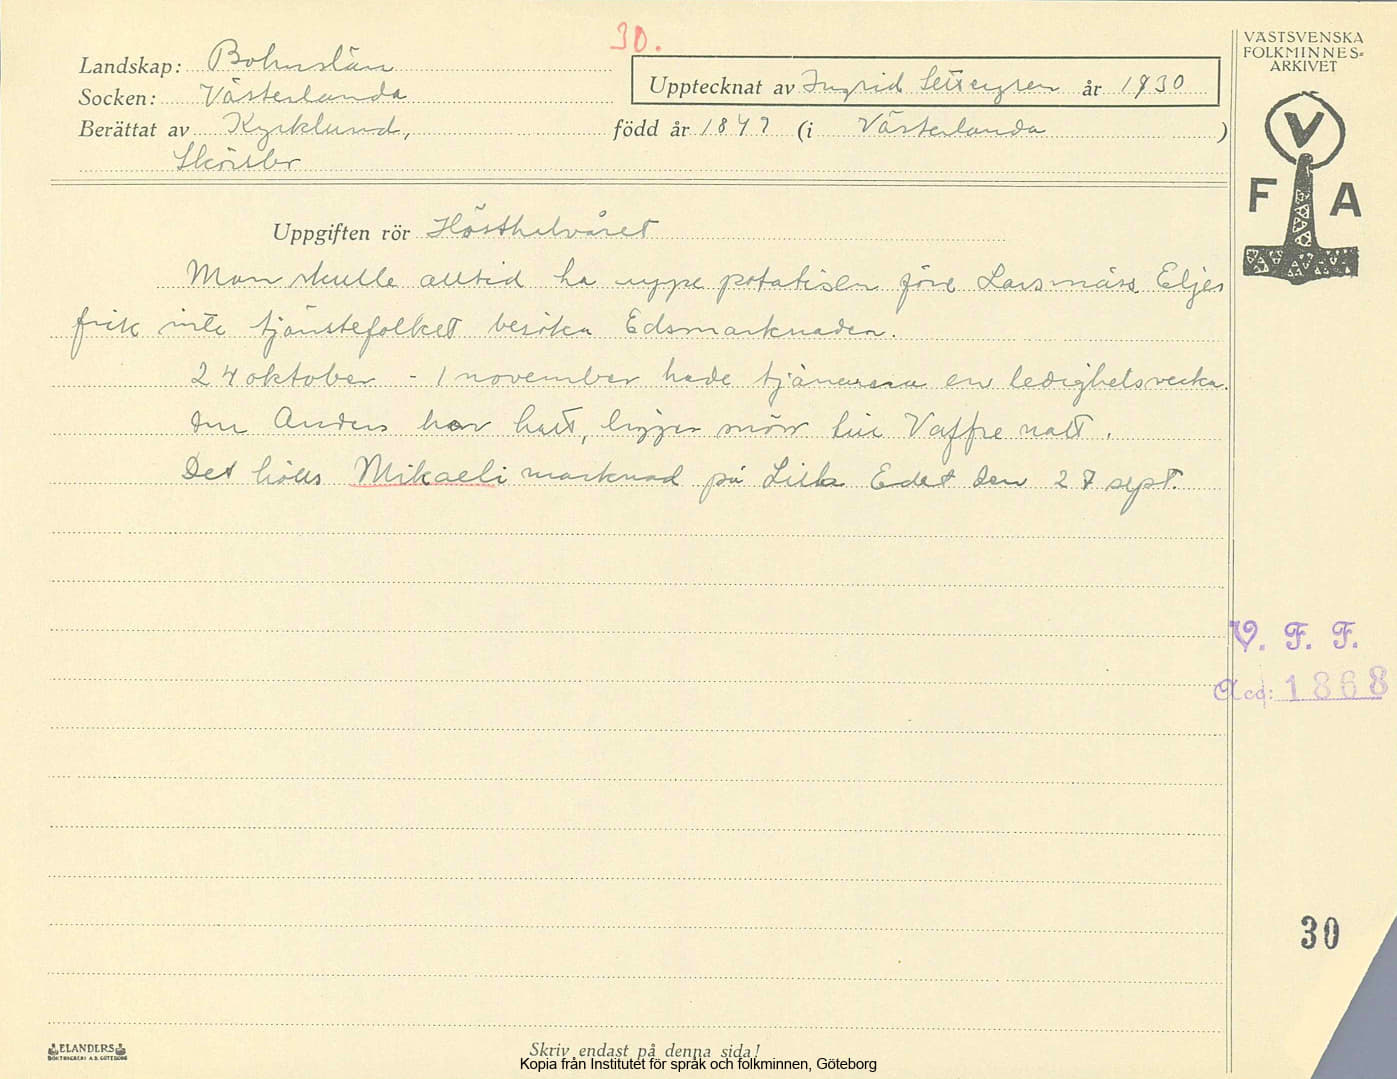 30.
Landskap: Bohuslän
Socken: Västerlanda
Upptecknat av Ingrid år 1930
Berättat av Kyrklund, född år 1847 (i Västerlanda )
Uppgiften rör Hösthalvåret
Man skulle alltid ha uppe potatisen före Larsmäss Eljes
fick inte tjänstefolket besöka Edsmarknaden.
24 oktober - 1 november hade tjänarna en ledighetsvecka.
Om Anders har halt, ligger snön till Vaffre natt.
Det hölls Mikaeli marknad på Lilla Edet den 27 sept.
VÄSTSVENSKA
FOLKMINNES-
ARKIVET
V
F A
V. F. F.
Acc: 1868
30
ELANDERS
BOKTRYCKERI A.B. GÖTEBORG
Skriv endast på denna sida!
Kopia från Institutet för språk och folkminnen, Göteborg